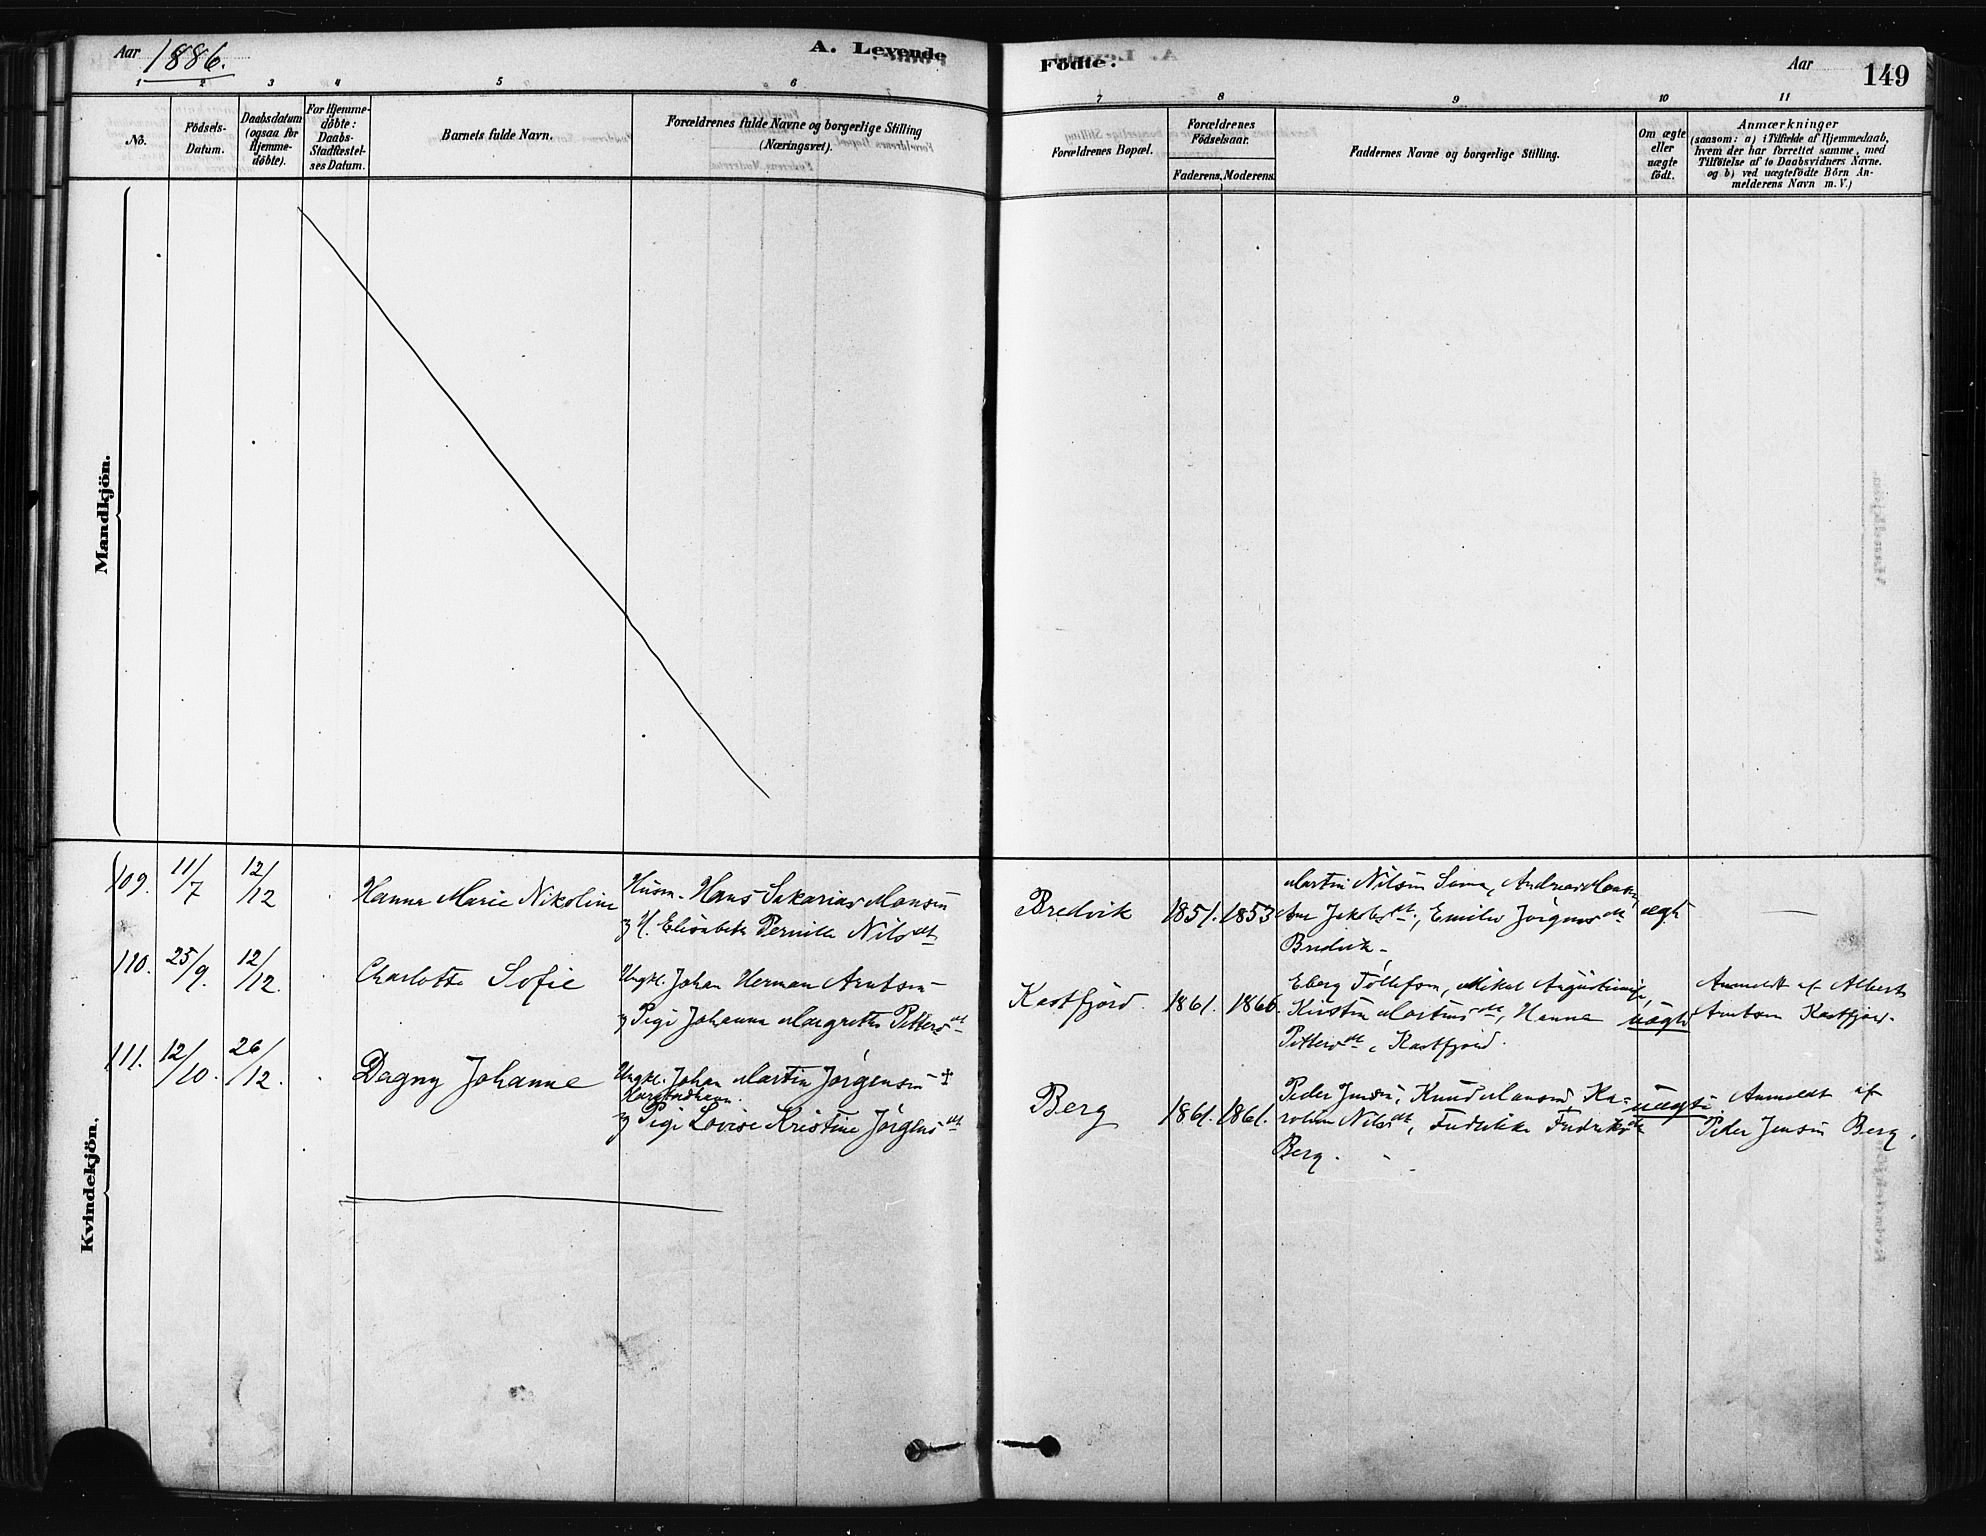 Aar 1886.
A. Levende
Fødte.
Aar
149
1 2 3 4 5 6
7 8 9 10 11
No.
Födsels-
Datum.
Daabsdatum
(ogsaa for
Hjemme-
döbte).
For Hjemme-
döbte:
Daabs-
Stadfæstel-
ses Datum.
Barnets fulde Navn.
Forældrenes fulde Navne og borgerlige Stilling
(Næringsvei).
Forældrenes Bopæl.
Forældrenes
Födselsaar.
Faderens. Moderens.
Faddernes Navne og borgerlige Stilling.
Om ægte
eller
uægte
födt.
Anmærkninger
(saasom: a) i Tilfælde af Hjemmedaab,
hvem der har forrettet samme, med
Tilföielse af to Daabsvidners Navne.
og b) ved uægtefödte Börn An-
melderens Navn m. V.)
Mandkjön.
Kvindekjön.
109. 11/7 12/12 Hanna Marie Nikoline
Husm. Hans Sakarias Monsen
og H. Elisabeth Pernille Nilsdt
Bredvik 1851. 1853
Martin Nilsen Sama, Andreas
Jakobsdt, Emilie Jørgensdt
Bredvik
ægte —
110. 25/9. 12/12. Charlotte Sofie
Ungkl. Johan Herman Arntsen
og Pige Johanna Margrethe Pettersdt
Kastfjord. 1861. 1866.
Eberg Tollefsen, Mikal
Kirstin Martinsdt, Hanna
Pettersdt, Kastfjord.
uægte
Anmeldt af Albert
Arntsen Kastfjord.
111. 12/10. 26/12. Dagny Johanne
Ungkl. Johan Martin Jørgensen +
og Pige Lovise Kristine Jørgensdt
Berg 1861. 1861.
Peder Jensen, Knud Monsen, Ka-
roline Nilsdt, Fredrikke Fredriksdt
Berg.
uægte.
Anmeldt af
Peder Jensen Berg.